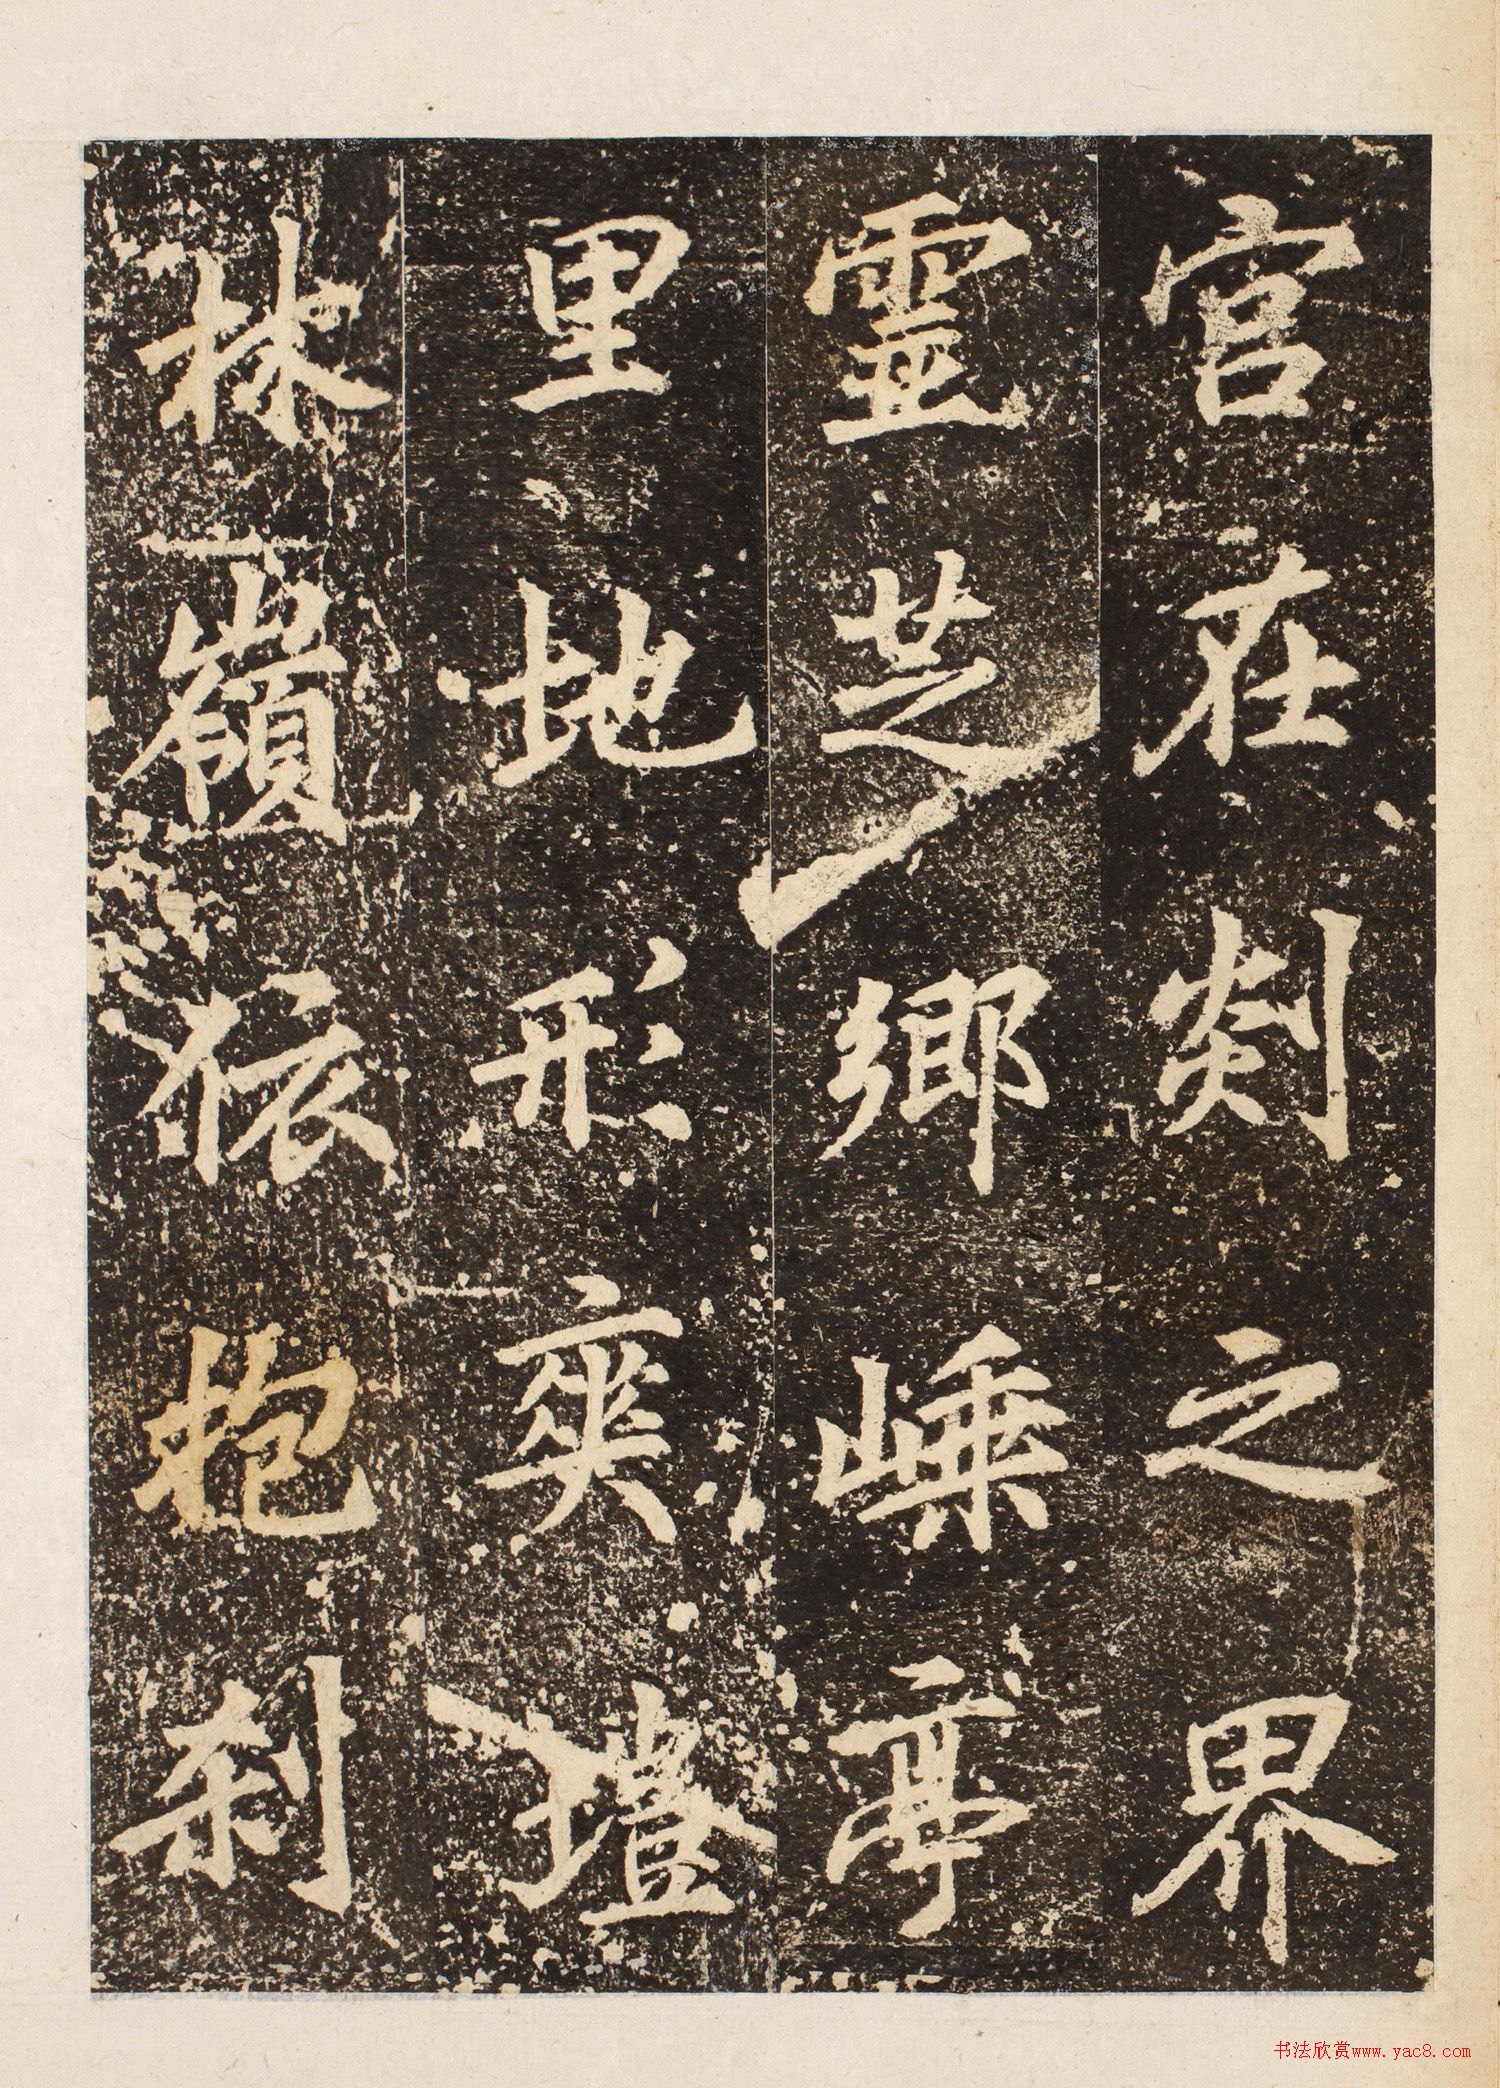 宫在剡之界
靈芝鄉嵊亭
里地形爽塏
林嶺依抱刹
书法欣赏www.yac8.com